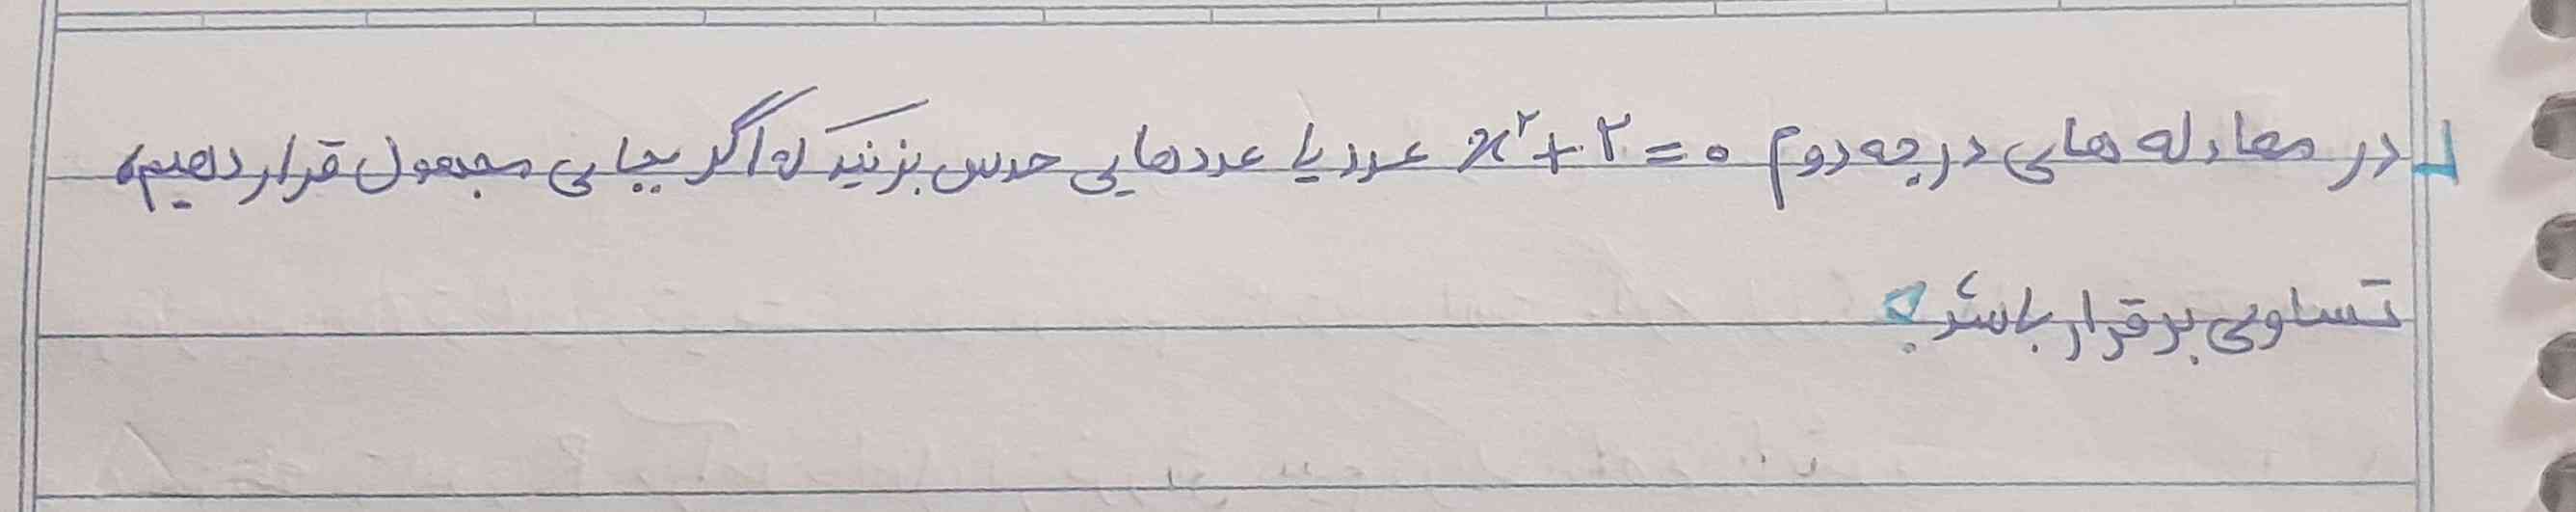 در معادله های درجه دوم x²+۲=۰ عدد یا عددهایی حدس بزنید که اگر بجای مجهول قرار دهیم،
تساوی برقرار باشد؟